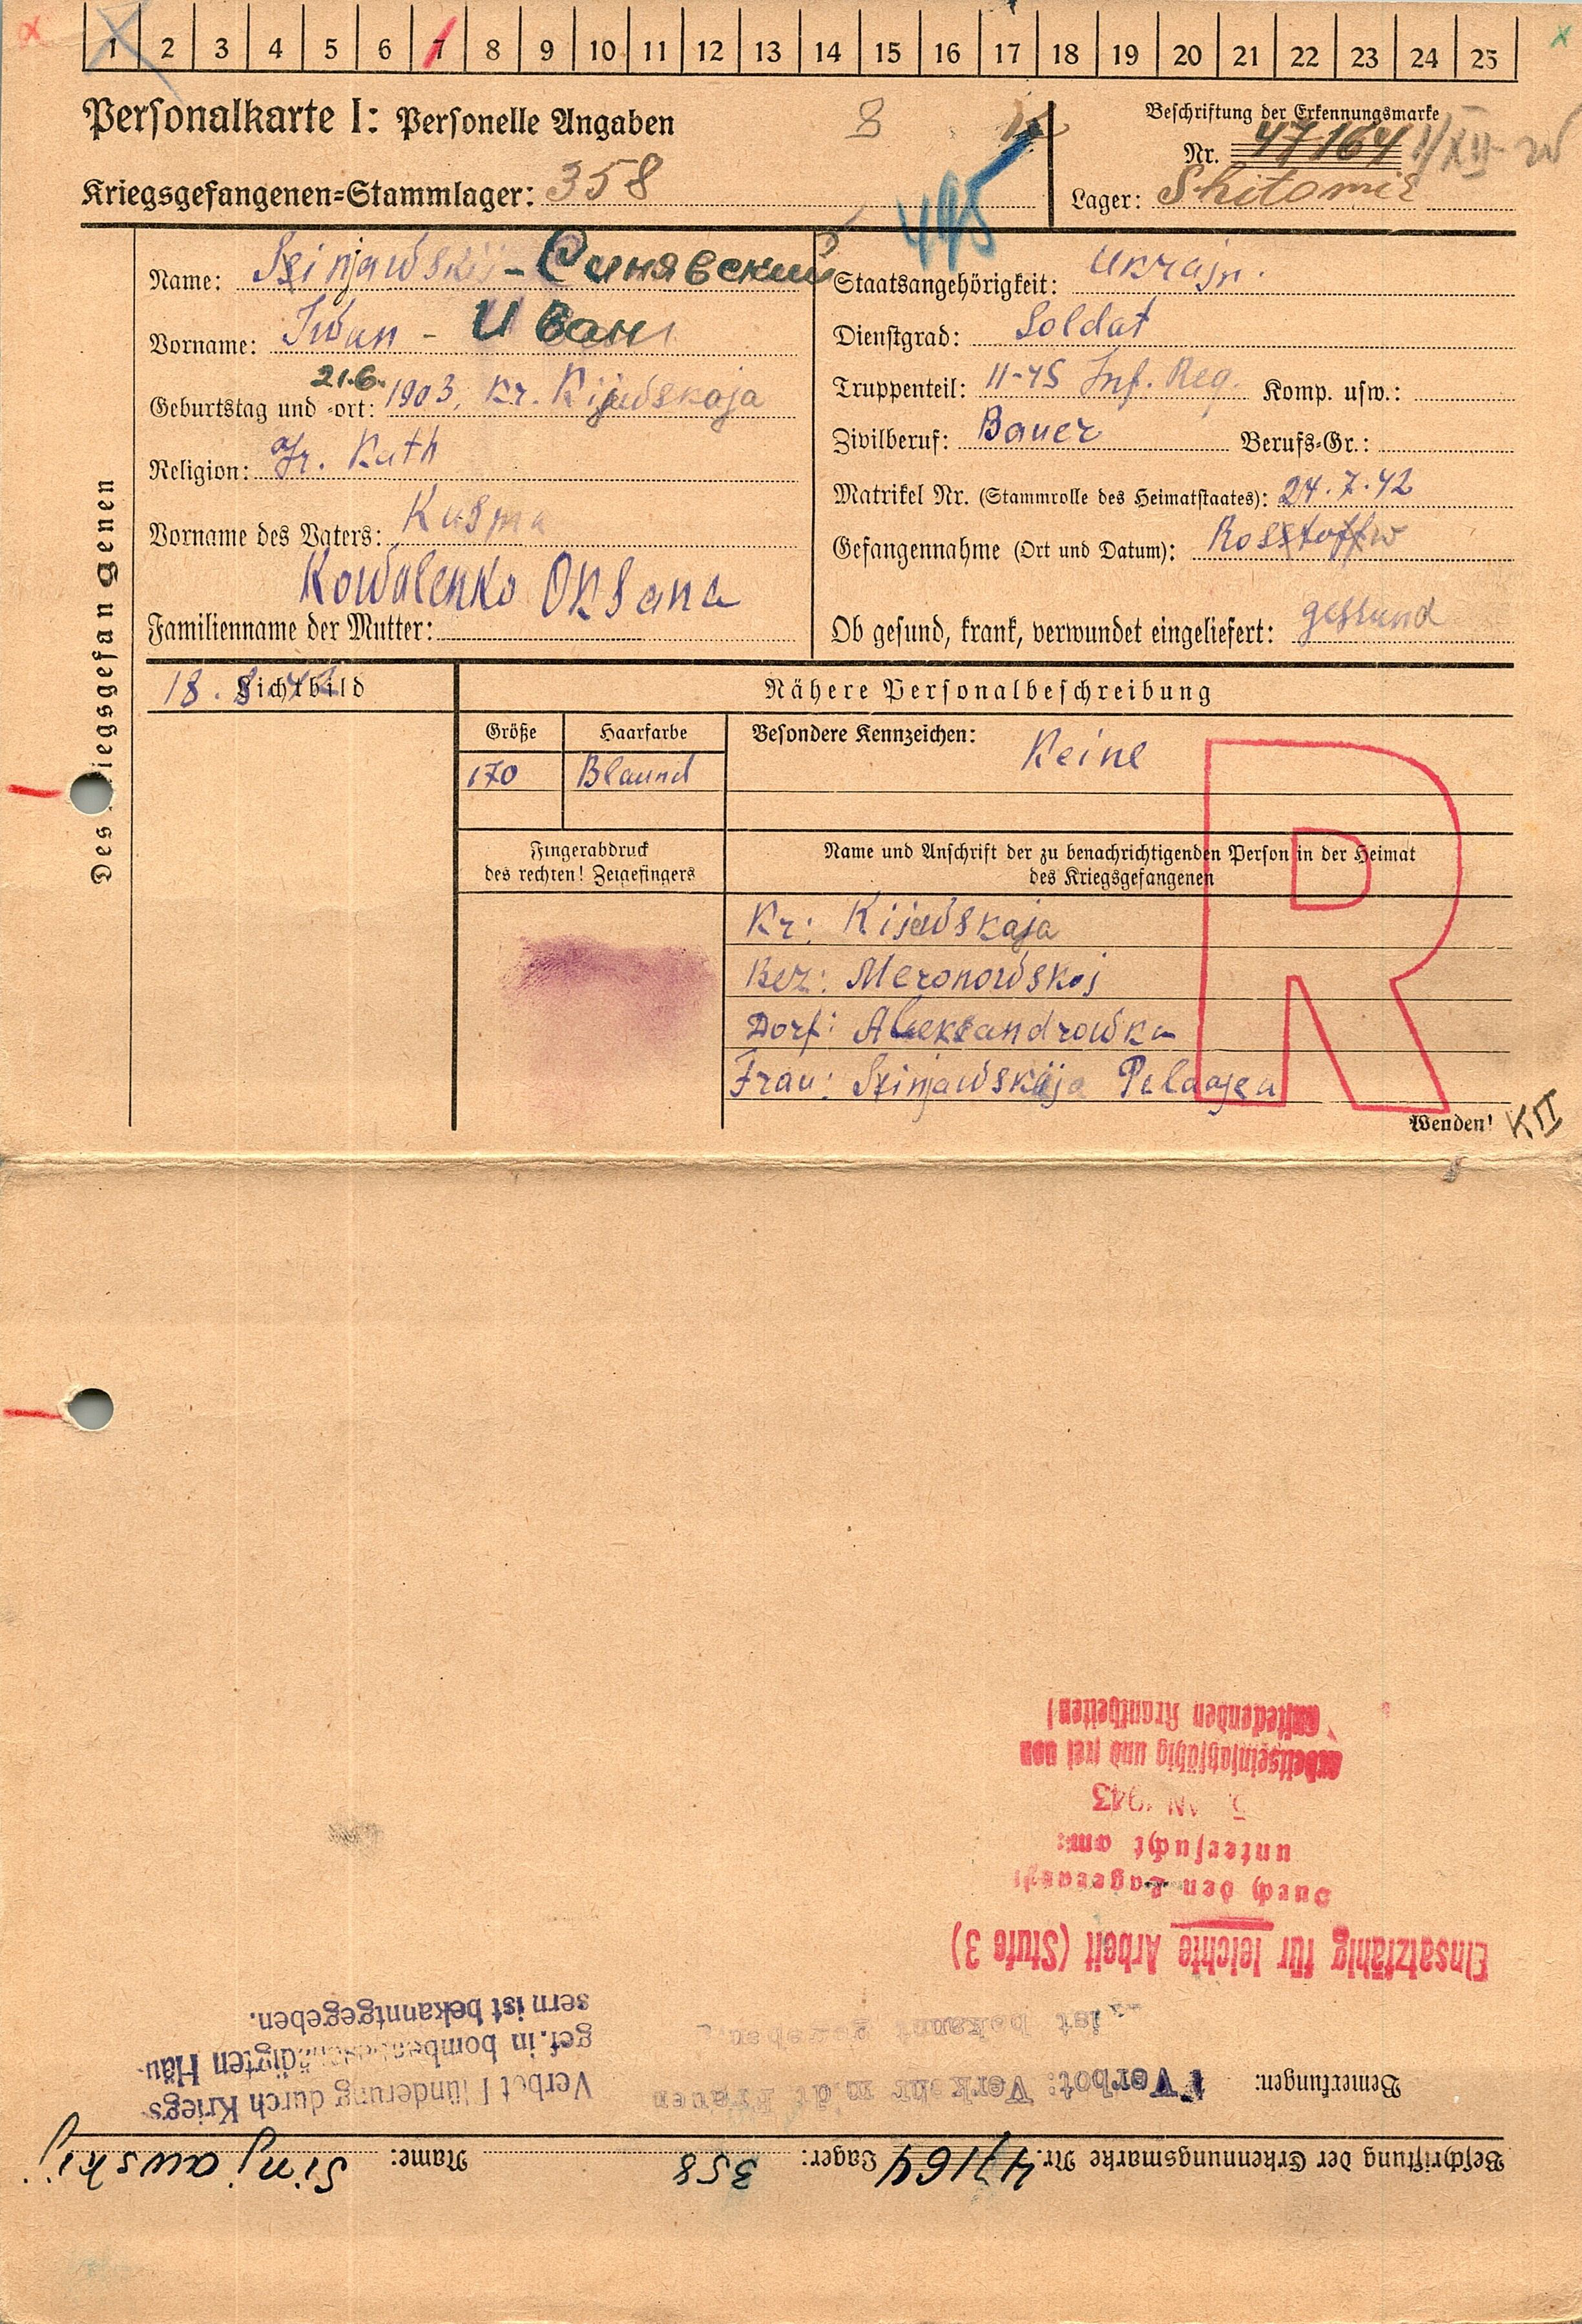 1 2 3 4 5 6 7 8 9 10 11 12 13 14 15 16 17 18 19 20 21 22 23 24 25
Personalkarte I: Personelle Angaben
8
Beschriftung der Erkennungsmarke
Nr. 47164
Kriegsgefangenen-Stammlager: 358
495
Lager: Shitomir
Des Kriegsgefangenen
Name: Szinjawskij - Синявский
Vorname: Iwan - Иван
Geburtstag und -ort: 21.6. 1903, Kr. Kijewskaja
Religion: gr. Kath
Vorname des Vaters: Kusma
Kowalenko Oksana
Familienname der Mutter:
Staatsangehörigkeit: Ukrajn.
Dienstgrad: Soldat
Truppenteil: 11-45 Inf. Reg. Komp. usw.:
Zivilberuf: Bauer Berufs-Gr.:
Matrikel Nr. (Stammrolle des Heimatstaates): 24.7.42
Gefangennahme (Ort und Datum): Rosstoffw
Ob gesund, krank, verwundet eingeliefert: gessund
18. 8. 42 Lichtbild
Nähere Personalbeschreibung
Größe Haarfarbe Besondere Kennzeichen: Keine
170 Blaund
R
Fingerabdruck
des rechten! Zeigefingers
Name und Anschrift der zu benachrichtigenden Person in der Heimat
des Kriegsgefangenen
Kr: Kijewskaja
Bez: Meronowskoj
Dorf: Aleksandrowka
Frau: Szinjawskaja Pelagea
Wenden! KII
Beschriftung der Erkennungsmarke Nr. 47164 Lager: 358 Name: Sinjawskij
Bemerkungen: Verbot: Verkehr mit Frauen
ist bekannt gegeben
Verbot Plünderung durch Kriegs-
gef. in bombengeschädigten Häu-
sern ist bekanntgegeben.
Einsatzfähig für leichte Arbeit (Stufe 3)
Durch den Lagerarzt
untersucht am:
JAN 1943
arbeitseinsatzfähig und frei von
ansteckenden Krankheiten!